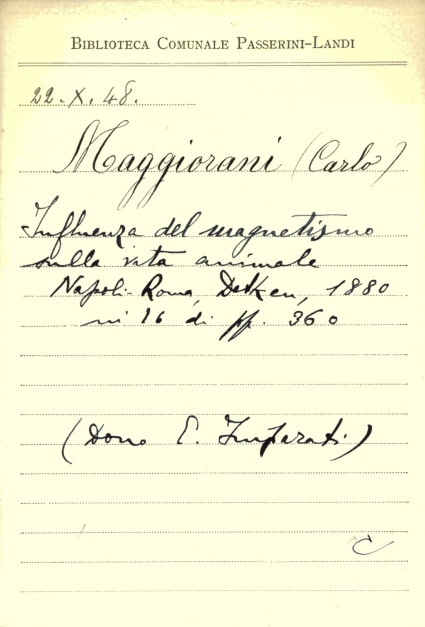 BIBLIOTECA COMUNALE PASSERINI-LANDI
22.X.48.
Maggiorani (Carlo)
Influenza del magnetismo
sulla vita animale
Napoli-Roma, Detken, 1880
in 16 di pp. 360
(Dono E. Imparati)
C